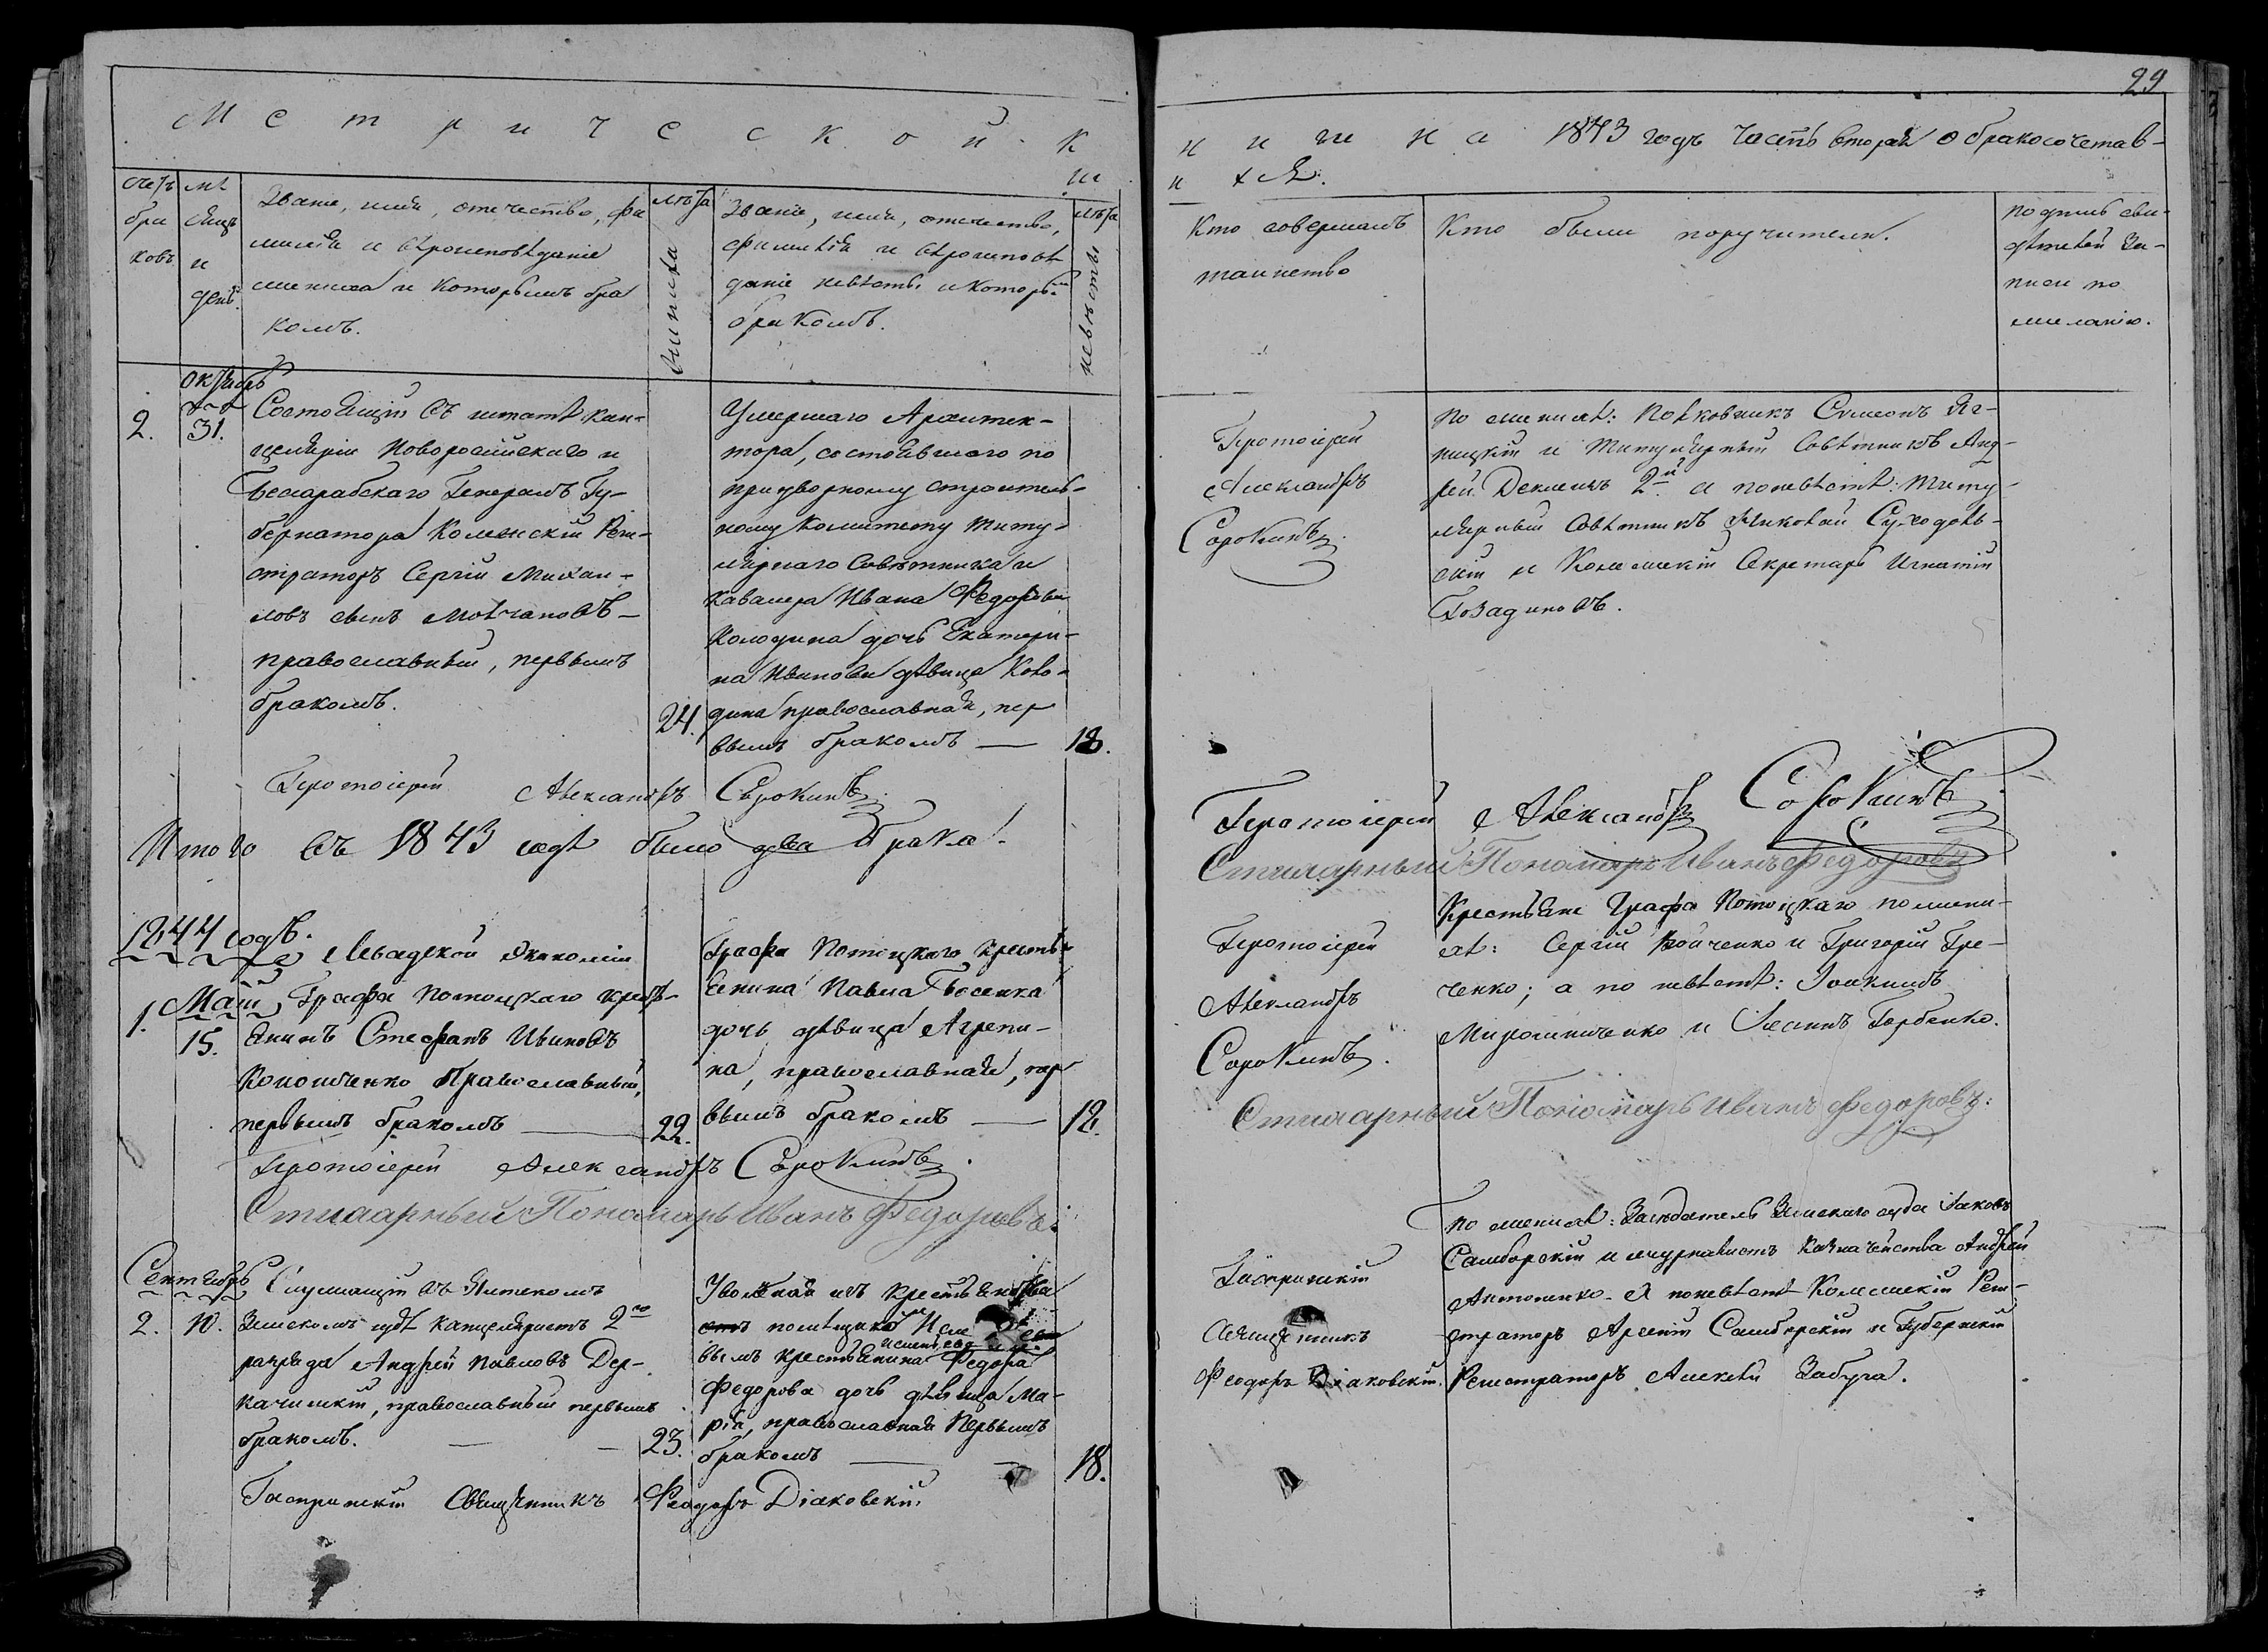 29
Метрической книги на 1843 годъ Часть вторая о бракосочетавшихся.
Счетъ браковъ
Мѣсяцъ и день.
Званіе, имя, отчество, фа
милія и вѣроисповѣданіе
жениха и которымъ бра
комъ.
лѣта жениха
Званіе, имя, отчество,
фамилія и вѣроисповѣ
даніе невѣсты и которы
бракомъ.
лѣта невѣсты
Кто совершалъ
таинство
Кто были поручители.
Подпись сви-
дѣтелей за-
писи по
желанію.
2.
Октябрь
31.
Состоящій въ штатѣ кан-
целяріи Новоросійскаго и
Бессарабскаго Генералъ Гу-
бернатора Колежскій Реги-
страторъ Сергій Михаи-
ловъ сынъ Молчановъ
православный, первымъ
бракомъ.
24.
Умершаго Архитек-
тора, состоявшаго по
придворному строитель-
ному комитету титу-
лярнаго Совѣтника и
Кавалера Ивана Федорова
Колодина дочь Екатери-
на Иванова дѣвица Коло-
дина православная, пер
вымъ бракомъ — 18.
Протоіерей
Александръ
Сорокинъ.
По женихѣ: Полковникъ Симеонъ
и Титулярный Совѣтникъ Анд-
рей 2й. а по невѣстѣ: титу-
лярный Совѣтникъ Николай Суходоль-
скій и Колежскій Секретарь Игнатій
Гозадиновъ.
Протоіерей Александръ Сорокинъ.
Итого въ 1843 годѣ было два брака.
Протоіерей Александръ Сорокинъ
Стихарный Пономарь Иванъ Федоровъ
1844 годъ.
1.
Май
15.
Ливадской Экономіи
Графа Потоцкаго кресть-
янинъ Стефанъ Ивановъ
Православный,
первымъ бракомъ — 22.
Графа Потоцкаго кресть-
янина Павла Босенка
дочь дѣвица Агрепи-
на, православная, пер
вымъ бракомъ — 18.
Протоіерей
Александръ
Сорокинъ.
Крестьяне Графа Потоцкаго по жени-
хѣ: Сергій Бойченко и Григорій Гре-
ченко; а по невѣстѣ: Іоакимъ
Мирошниченко и Іоаннъ Горбенко.
Протоіерей Александръ Сорокинъ.
Стихарный Пономарь Иванъ Федоровъ.
Стихарный Пономарь Иванъ Федоровъ.
Сентябрь
2. 10.
Служащій въ Ялтскомъ
Земскомъ судѣ канцеляристъ 2го
разряда Андрей Павловъ Дер-
качинскій, православный первымъ
бракомъ. — 23.
изъ крестьянства
помѣщика
крестьянина Федора
Федорова дочь дѣвица Ма-
рія, православная первымъ
бракомъ — 18.
Гаспринскій
Священникъ
Феодоръ Діаковскій.
По женихѣ: Засѣдатель Земскаго суда Іаковъ
Самборскій и журналистъ Казначейства Андрей
Антоненко. А по невѣстѣ Колежскій Реги-
страторъ Арсеній Самборскій и Губернскій
Регистраторъ Алексѣй Забуга.
Гаспринскій Священникъ Феодоръ Діаковскій